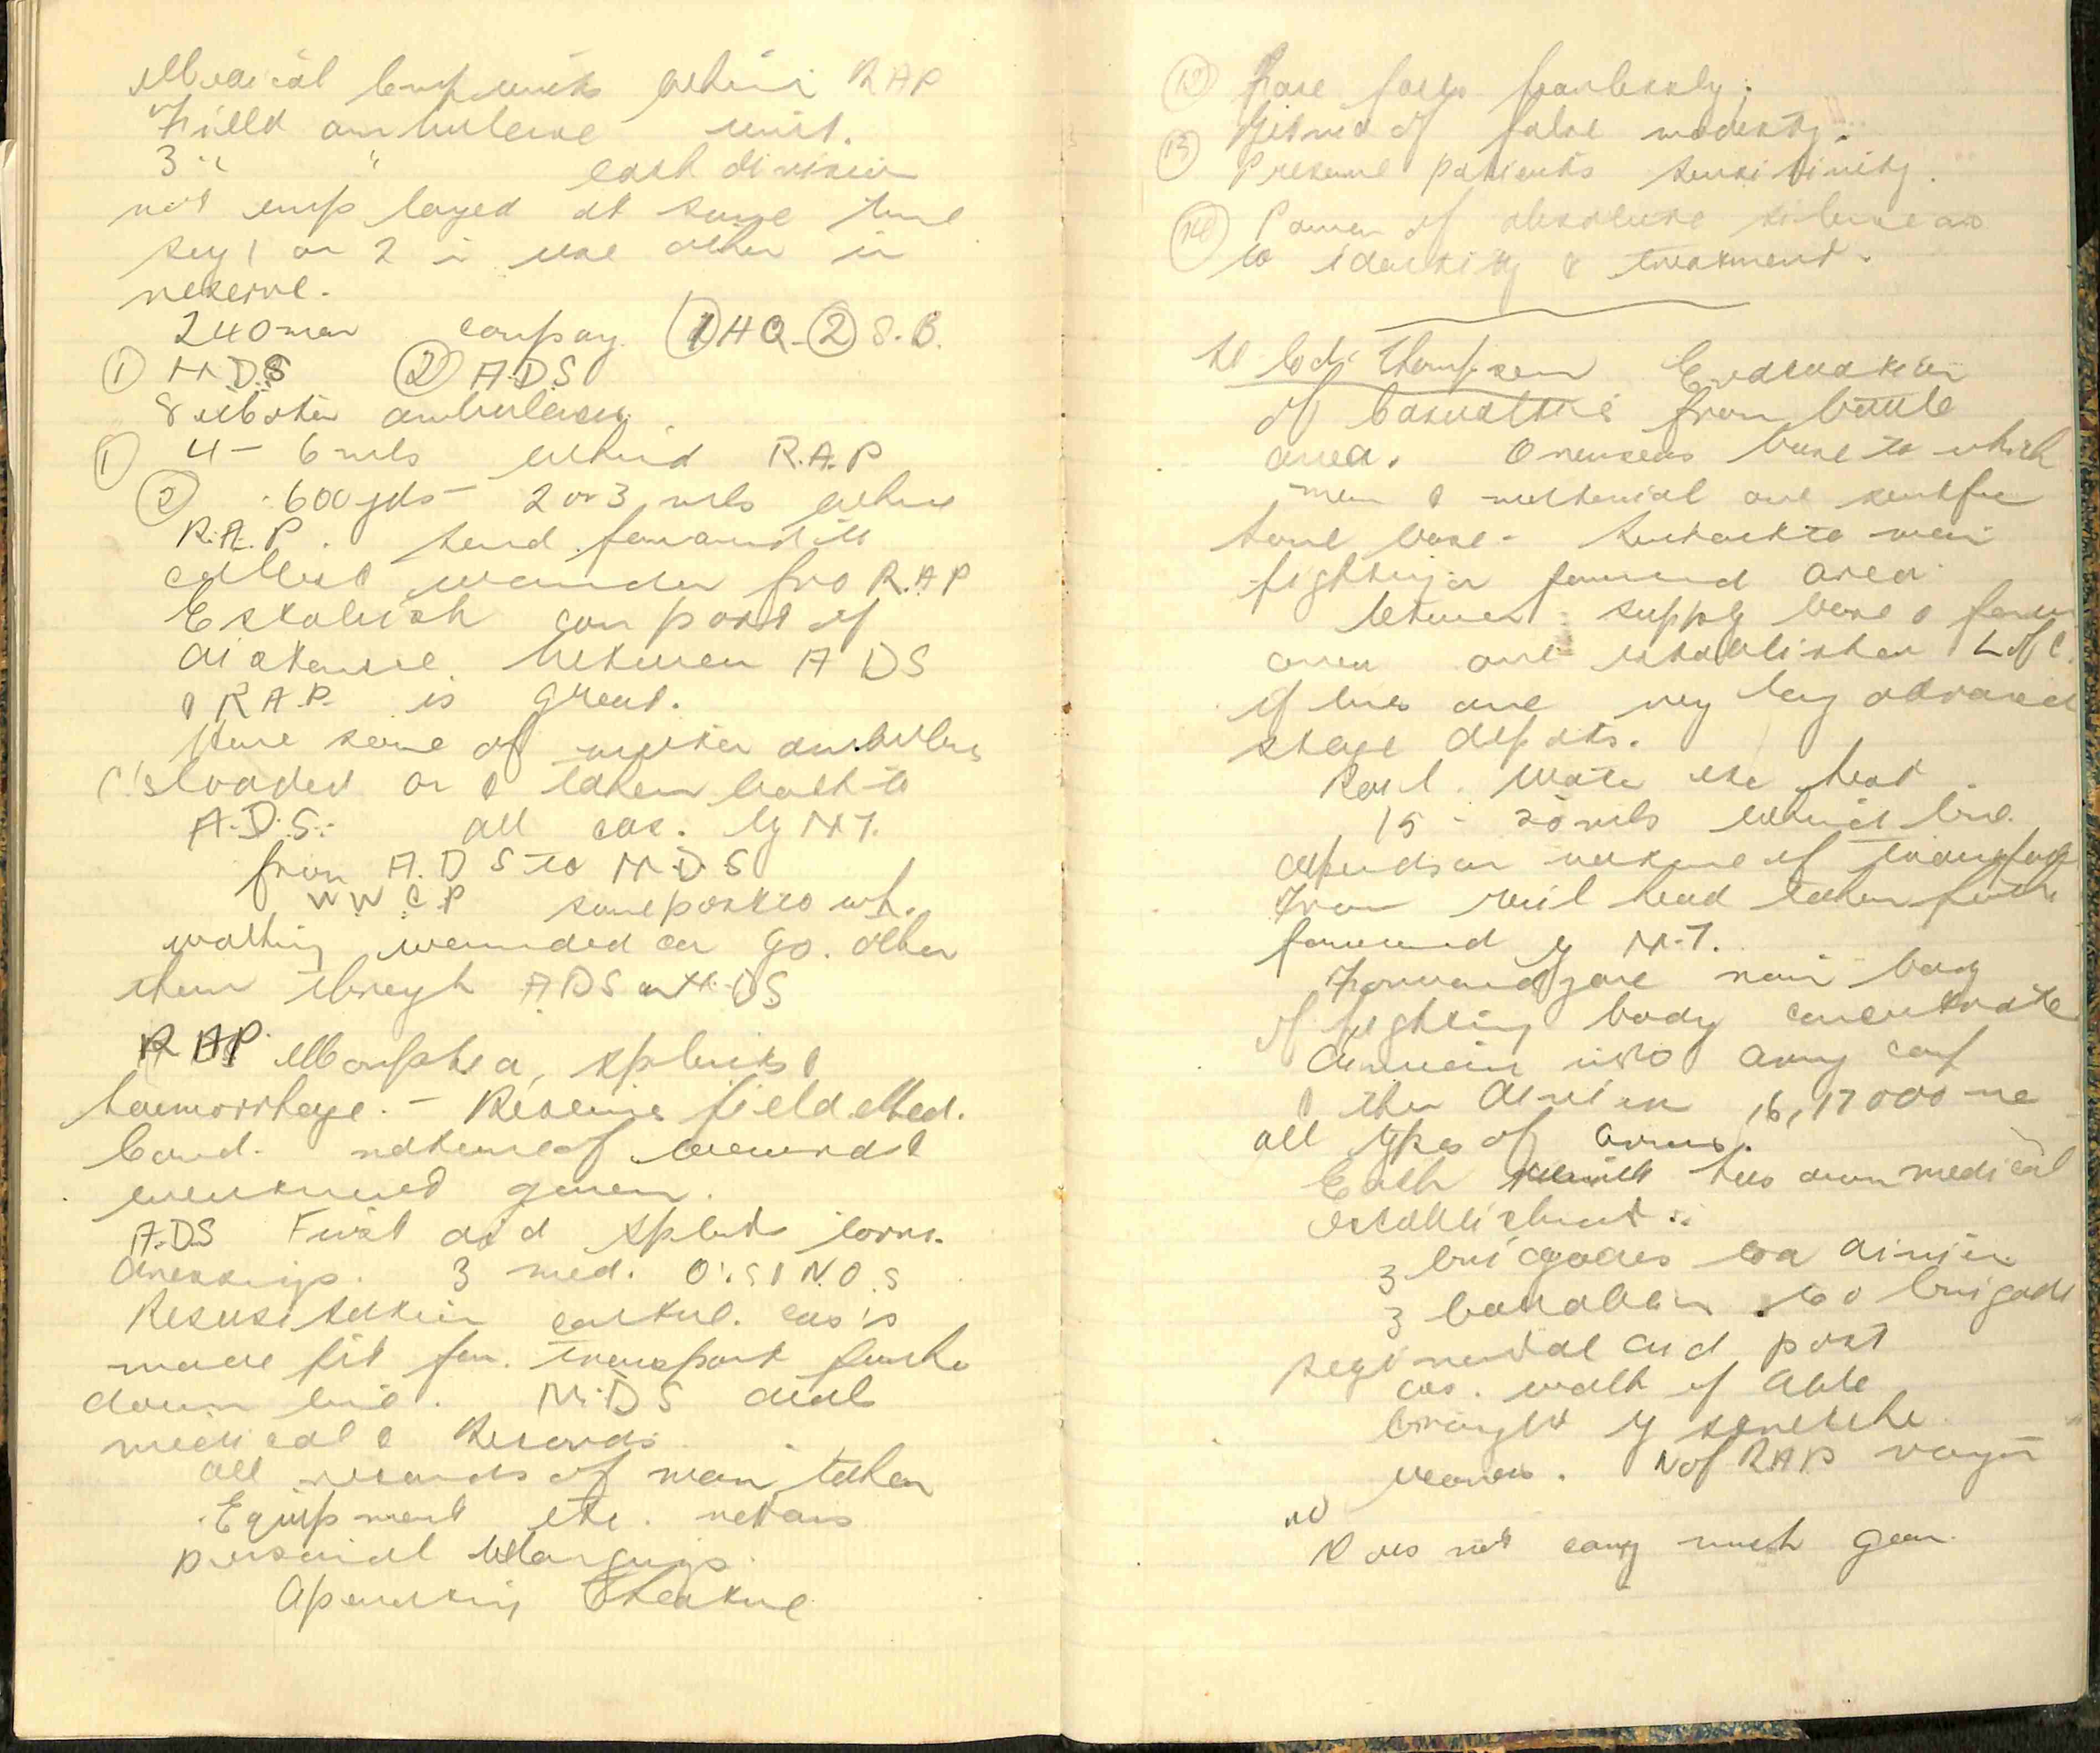 Medical Corps units behind RAP
Field ambulance unit.
3 " " each division
not employed at same time
say 1 or 2 in use other in
reserve.
240 men company ① HQ - ② S.B.
① M D S ② A.D.S
8 ambulances
① 4 - 6 mls behind R.A.P
② 600 yds - 2 or 3 mls behind
R.A.P. send forward to
collect wounded fro R.A.P
Establish car post if
distance between A DS
& R A P is great.
Here some of motor ambulances
C's loaded on & taken back to
A.D.S. all cas. by M T.
from A.D S to M.D.S
W W C P some post to wh.
walking wounded can go. other
than through ADS or M.DS
R AP. Morphia, splints &
haemorrhage. - Receives field Med.
Card. nature of wound &
treatment given.
A.D.S First aid splints
dressings. 3 med. O's & N.O.s
Resusitation cas's
made fit for transport further
down line. M.D S
medical & Records
all records of man taken
Equipment etc. retains
personal belongings.
Operating Theatre
⑫ Face facts fearlessly.
Get rid of false modesty.
⑬ Preserve patients sensitivity.
⑭ Power of absolute silence as
to identity & treatment.
Thompson Evacuation
of Casualties from battle
area. Overseas base to which
men & material are sent from
home base - sent back to main
fighting or forward area
between supply base & forward
area are established L of C.
if lines are very long advanced
stage depots.
Rail head
15 - 20 mls behind line
depends on nature of transport
From rail head taken further
forward by M.T.
Forward zone main body
of fighting body concentrate
division into army corp
& then division 16, 17000 me
all types of arms.
Each unit has own medical
establishment.
3 brigades to a division
3 battalions to a brigade
regimental aid post
cas. walk if able
brought by stretcher
bearers. N of RAP varys
no
Does not carry much gear.